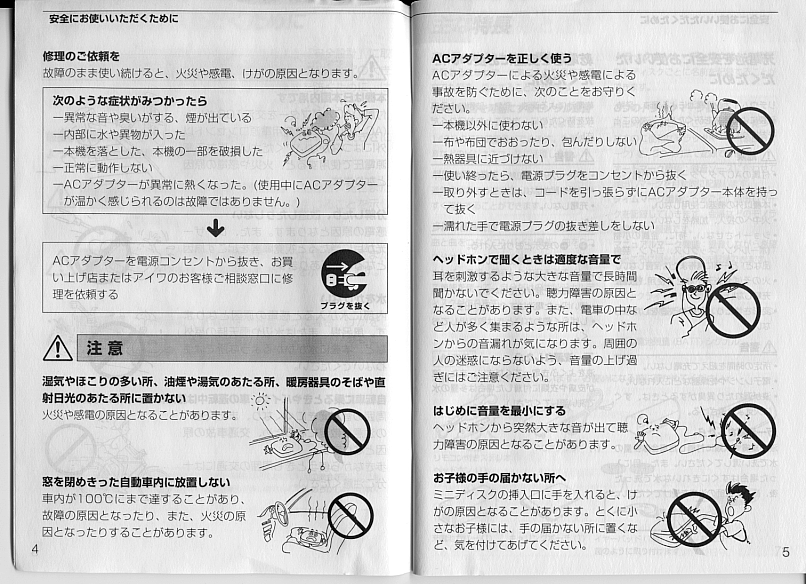 安全にお使いいただくために
修理のご依頼を
故障のまま使い続けると、火災や感電、けがの原因となります。
次のような症状がみつかったら
—異常な音や臭いがする、煙が出ている
—内部に水や異物が入った
—本機を落とした、本機の一部を破損した
—正常に動作しない
—ACアダプターが異常に熱くなった。(使用中にACアダプター
が温かく感じられるのは故障ではありません。)
ACアダプターを電源コンセントから抜き、お買
い上げ店またはアイワのお客様ご相談窓口に修
理を依頼する
プラグを抜く
注意
湿気やほこりの多い所、油煙や湯気のあたる所、暖房器具のそばや直
射日光のあたる所に置かない
火災や感電の原因となることがあります。
窓を閉めきった自動車内に放置しない
車内が100℃にまで達することがあり、
故障の原因となったり、また、火災の原
因となったりすることがあります。
4
ACアダプターを正しく使う
ACアダプターによる火災や感電による
事故を防ぐために、次のことをお守りく
ださい。
—本機以外に使わない
—布や布団でおおったり、包んだりしない
—熱器具に近づけない
—使い終ったら、電源プラグをコンセントから抜く
—取り外すときは、コードを引っ張らずにACアダプター本体を持っ
て抜く
—濡れた手で電源プラグの抜き差しをしない
ヘッドホンで聞くときは適度な音量で
耳を刺激するような大きな音量で長時間
聞かないでください。聴力障害の原因と
なることがあります。また、電車の中な
ど人が多く集まるような所は、ヘッドホ
ンからの音漏れが気になります。周囲の
人の迷惑にならないよう、音量の上げ過
ぎにはご注意ください。
はじめに音量を最小にする
ヘッドホンから突然大きな音が出て聴
力障害の原因となることがあります。
お子様の手の届かない所へ
ミニディスクの挿入口に手を入れると、け
がの原因となることがあります。とくに小
さなお子様には、手の届かない所に置くな
ど、気を付けてあげてください。
5